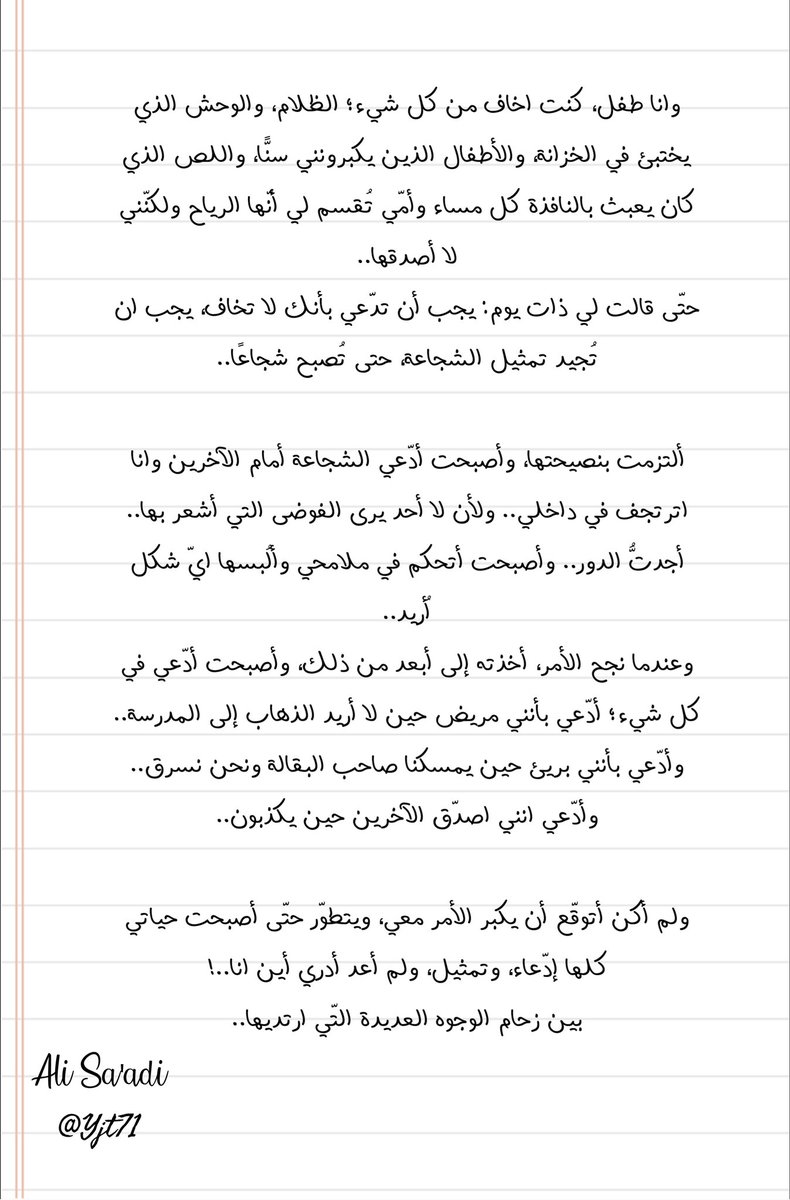 وانا طفل، كنت اخاف من كل شيء؛ الظلام، والوحش الذي
يختبئ في الخزانة، والأطفال الذين يكبرونني سنًّا، واللص الذي
كان يعبث بالنافذة كل مساء وأمّي تُقسم لي أنّها الرياح ولكنّني
لا أصدقها..
حتّى قالت لي ذات يوم: يجب أن تدّعي بأنك لا تخاف، يجب ان
تُجيد تمثيل الشجاعة، حتى تُصبح شجاعًا..
ألتزمت بنصيحتها، وأصبحت أدّعي الشجاعة أمام الآخرين وانا
اترتجف في داخلي.. ولأن لا أحد يرى الفوضى التي أشعر بها..
أجدتُّ الدور.. وأصبحت أتحكم في ملامحي وألُبسها ايّ شكل
أُريد..
وعندما نجح الأمر، أخذته إلى أبعد من ذلك، وأصبحت أدّعي في
كل شيء؛ أدّعي بأنني مريض حين لا أريد الذهاب إلى المدرسة..
وأدّعي بأنني بريئ حين يمسكنا صاحب البقالة ونحن نسرق..
وأدّعي انني اصدّق الآخرين حين يكذبون..
ولم أكن أتوقّع أن يكبر الأمر معي، ويتطوّر حتّى أصبحت حياتي
كلها إدّعاء، وتمثيل، ولم أعد أدري أين انا..!
بين زحام الوجوه العديدة التّي ارتديها..
Ali Sa'adi
@Yjt71